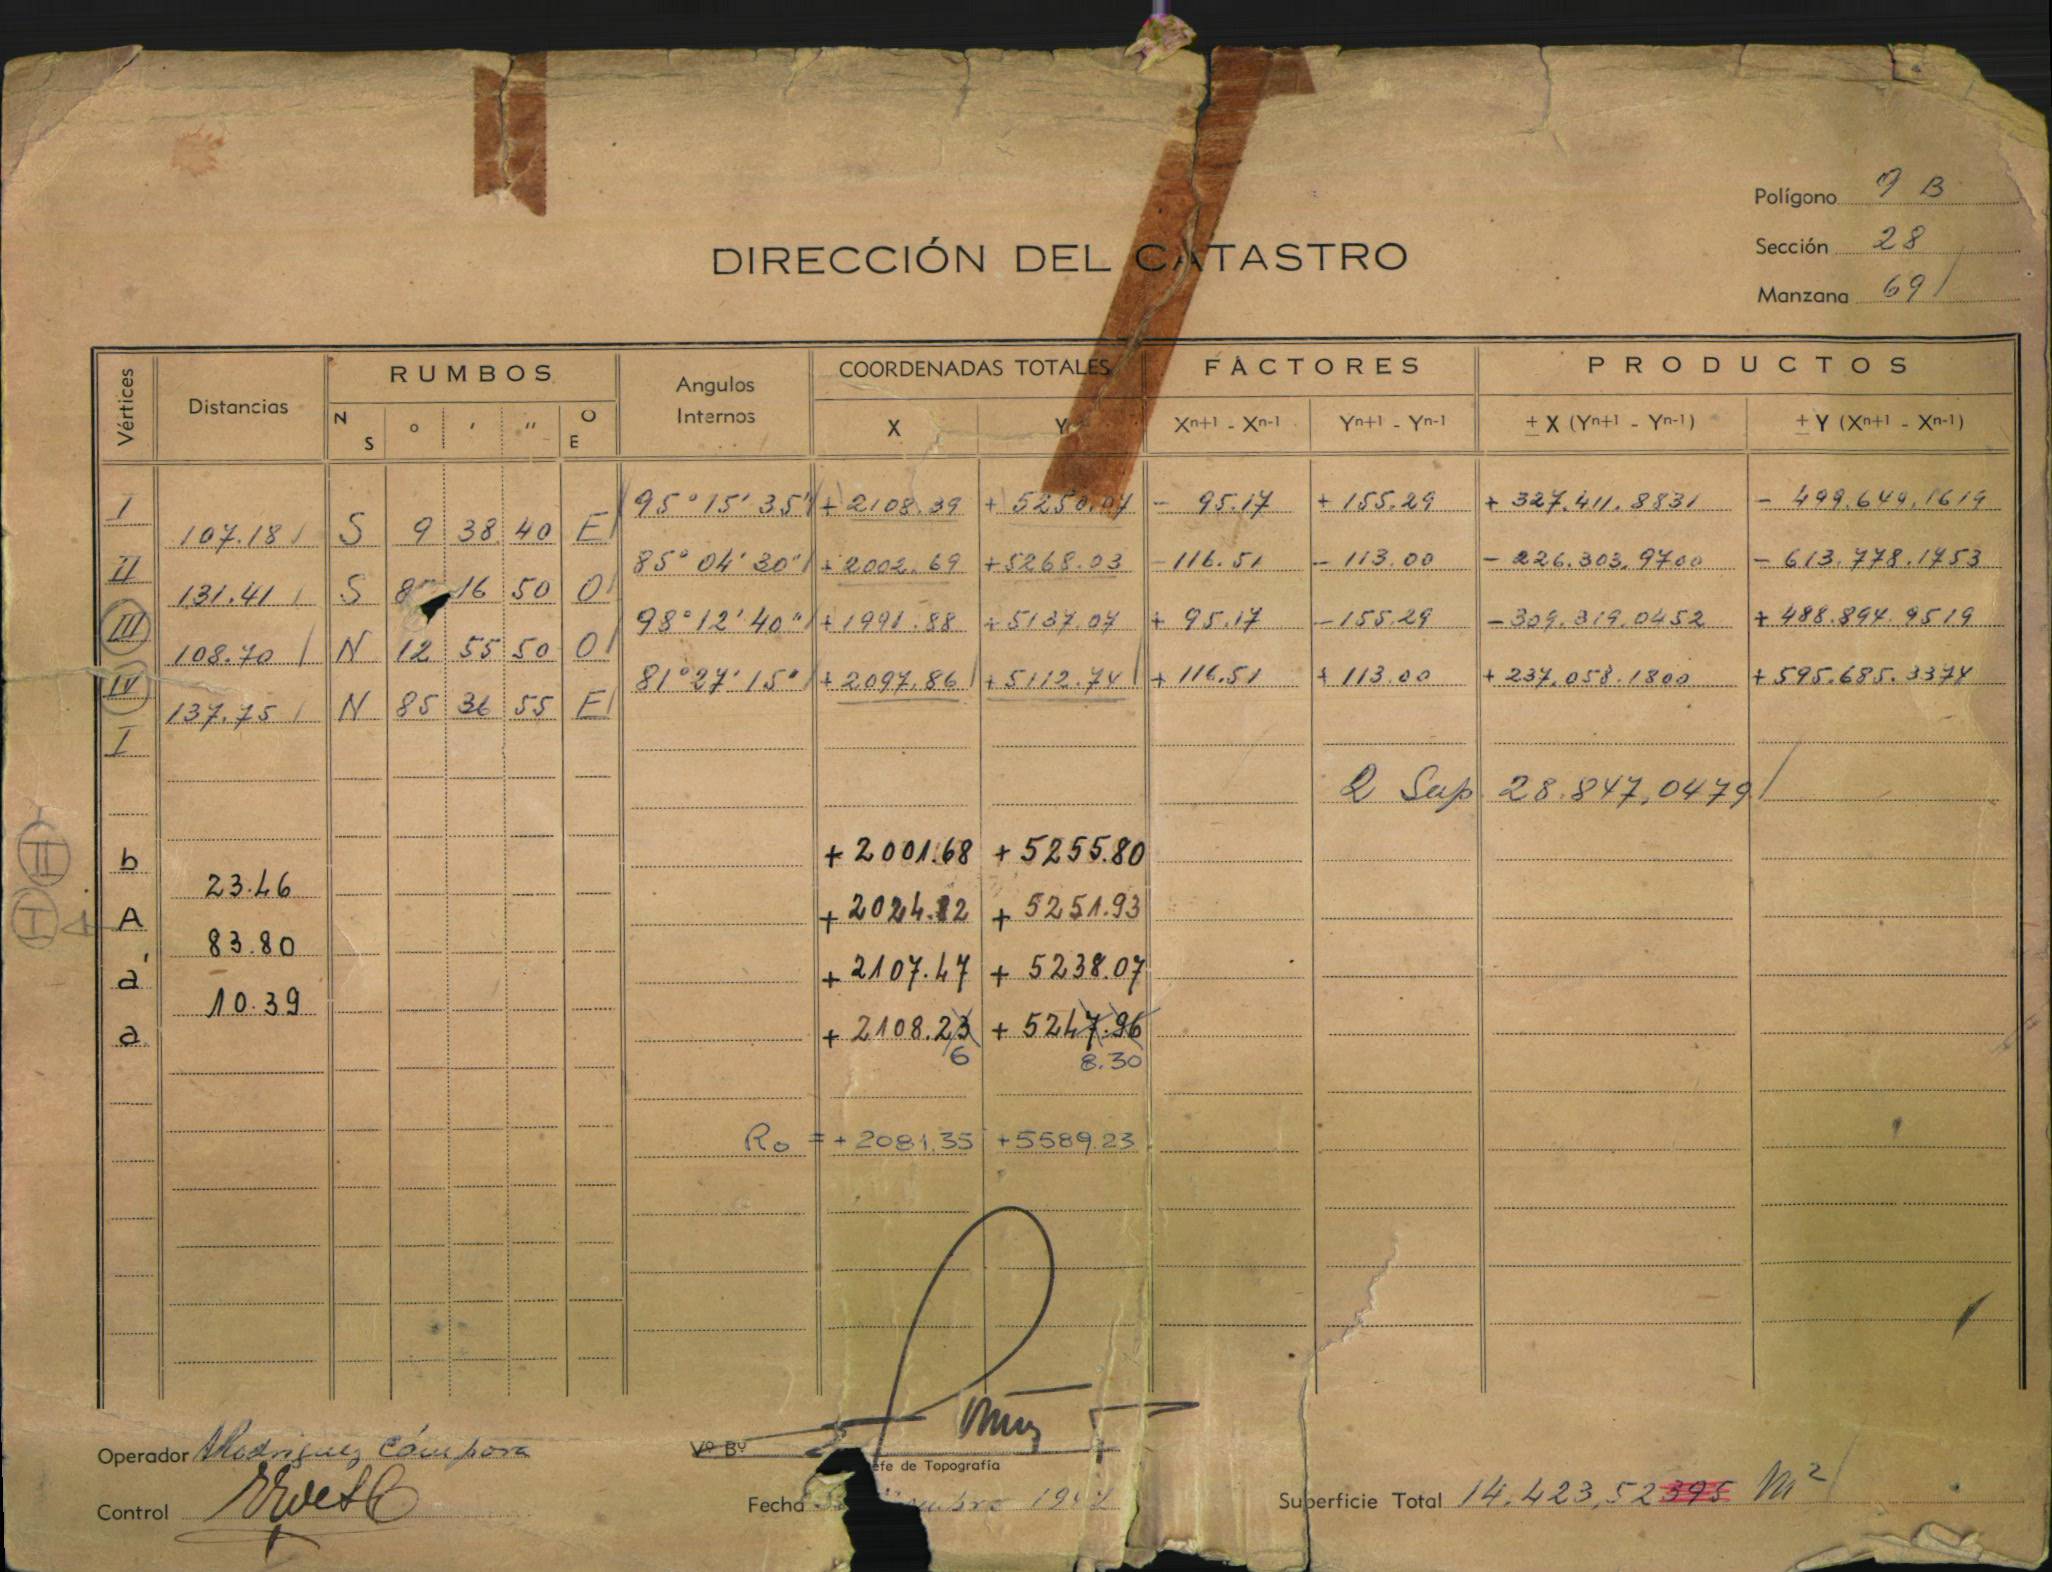 Polígono 9 B
Sección 28
DIRECCIÓN DEL CATASTRO
Manzana 69
Vértices Distancias RUMBOS Angulos Internos COORDENADAS TOTALES FACTORES PRODUCTOS
N S ° ' " O E X Y Xn+1 - Xn-1 Yn+1 - Yn-1 ± X (Yn+1 - Yn-1) ± Y (Xn+1 - Xn-1)
I 95° 15' 35" + 2108.39 + 5250.07 - 95.17 + 155.29 + 327.411.8831 - 499.649.1619
107.18 S 9 38 40 E
II 85° 04' 30" + 2002.69 + 5268.03 - 116.51 - 113.00 - 226.303.9700 - 613.778.1753
131.41 S 16 50 O
III 98° 12' 40" + 1991.88 + 5137.07 + 95.17 - 155.29 - 309.319.0452 + 488.894.9519
108.70 N 12 55 50 O
IV 81° 27' 15" + 2097.86 + 5112.74 + 116.51 + 113.00 + 237.058.1800 + 595.685.3374
137.75 N 85 36 55 E
I
2 Sup 28.847,0479
II b + 2001.68 + 5255.80
23.46
I A + 2024.82 + 5251.93
83.80
a' + 2107.47 + 5238.07
10.39
a + 2108.23 + 5247.96
6 8.30
Ro = + 2081.35 + 5589.23
Operador ARodriguez Cámpora Vº Bº
efe de Topografía
Control Fecha Superficie Total 14.423,52395 m²